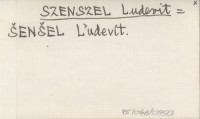 SZENSZEL Ludevit =
ŠENŠEL Ľudevít.